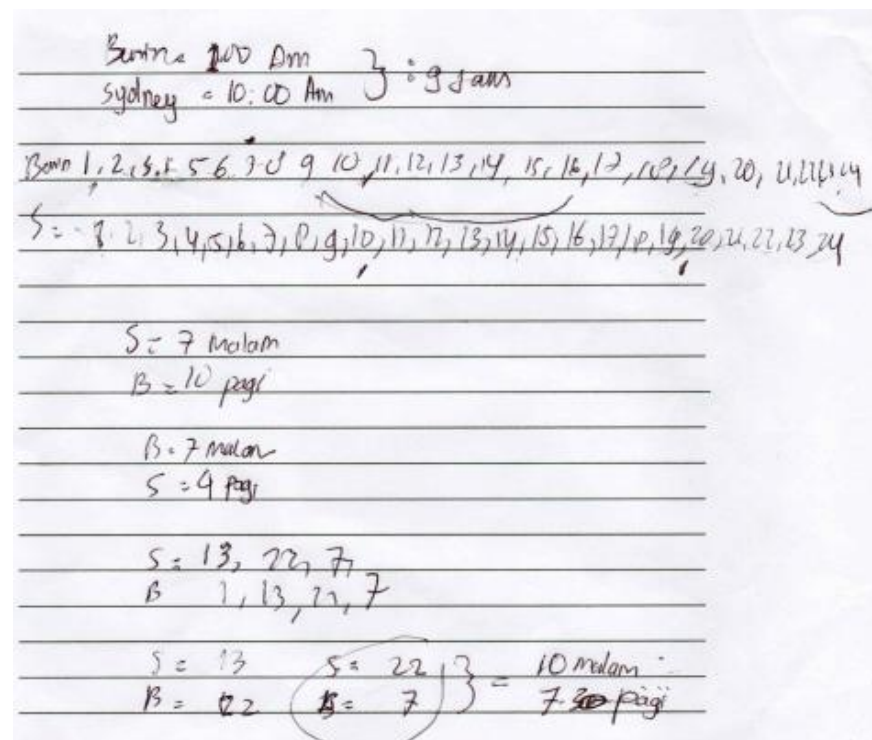 = 1.00 Am
Sydney = 10:00 Am } : 9 Jam
1, 2, 3, 5 6 7 8 9 10, 11, 12, 13, 14, 15, 16, 17, 18, 19, 20, 21, 22, 24
S = 2, 3, 4, 5, 6, 7, 8, 9, 10, 11, 12, 13, 14, 15, 16, 17, 18, 19, 20, 21, 22, 23, 24
S = 7 malam
B = 10 pagi
B = 7 malam
S = 4 pagi
S = 13, 22, 7,
B 1, 13, 22, 7
S = 13 S = 22 } = 10 malam
B = 22 B = 7 7 pagi